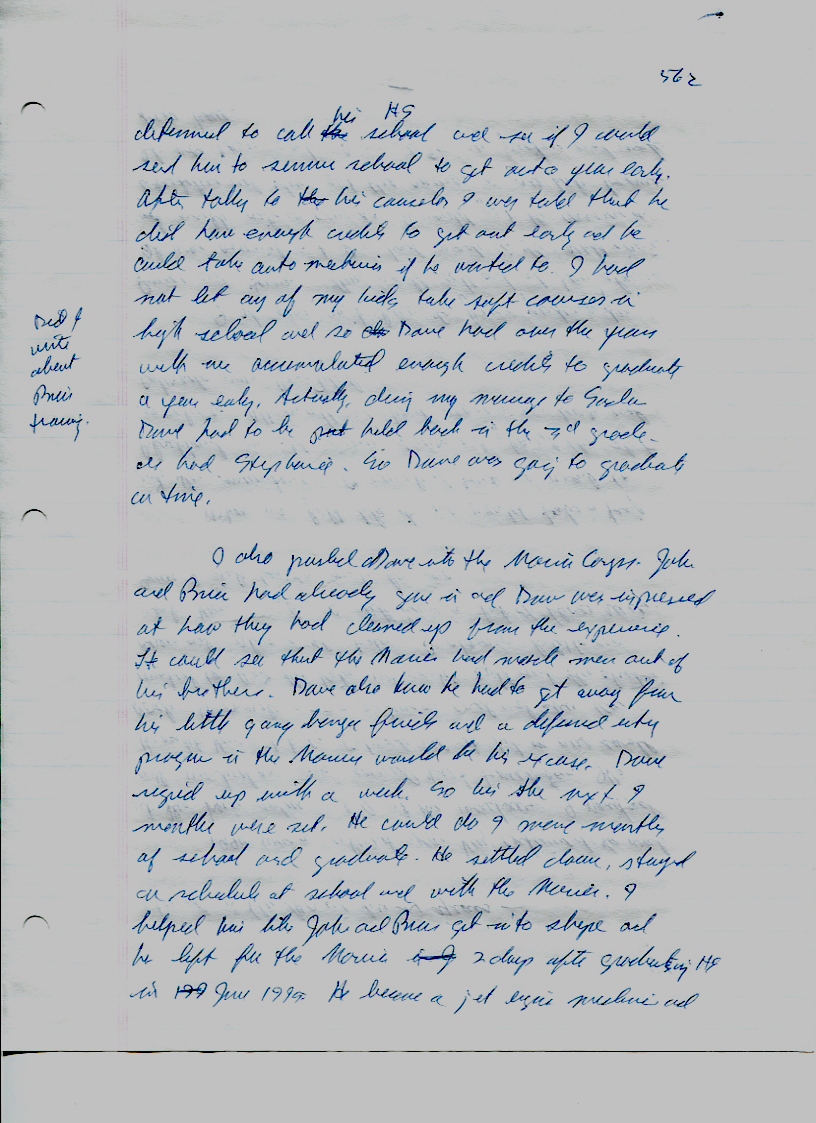 562
his HS
determined to call the school and see if I could
send him to summer school to get out a year early.
After talking to the his counselor I was told that he
did have enough credits to get out early and he
could take auto mechanics if he wanted to. I had
not let any of my kids take soft courses in
high school and so Dave had over the years
with me accumulated enough credits to graduate
a year early. Actually, during my marriage to
Dave had to be put held back in the 3rd grade
as had Stephanie. So Dave was going to graduate
on time.
Did I
write
about
Brian's
training.
I also pushed Dave into the Marine Corps. John
and Brian had already gone in and Dave was impressed
at how they had cleaned up from the experience.
It could see that the Marines had made men out of
his brothers. Dave also knew he had to get away from
his little gang banger friends and a deferred entry
program in the Marines would be his excuse. Dave
signed up within a week. So his the next 9
months were set. He could do 9 more months
of school and graduate. He settled down, stayed
on schedule at school and with the Marines. I
helped him like John and Brian get into shape and
he left for the Marines 2 days after graduating HS
in 199 June 1999. He became a jet engine mechanic and